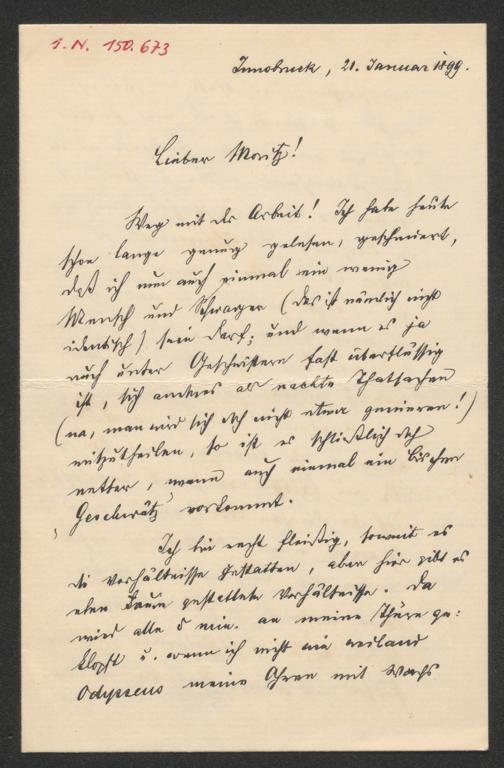 I. N. 150.673
Innsbruck, 21. Januar 1899.
Lieber Moritz!
Weg mit der Arbeit! Ich habe heute
schon lange genug gelesen, geschmiert,
daß ich nun auch einmal ein wenig
Mensch und Schwager (das ist nämlich nicht
identisch) sein darf; und wenn es ja
auch unter Geschwistern fast überflüssig
ist, sich anderes als nackte Thatsachen
(na, man wird sich doch nicht etwa genieren!)
mitzutheilen, so ist es schließlich doch
netter, wenn auch einmal ein bischen
„Geschwätz“ vorkommt.
Ich bin recht fleißig, soweit es
die Verhältnisse gestatten, aber hier gibt es
eben kaum gestattete Verhältnisse. Da
wird alle 5 Min. an meine Thüre ge-
klopft u. wenn ich nicht wie weiland
Odysseus meine Ohren mit Wachs